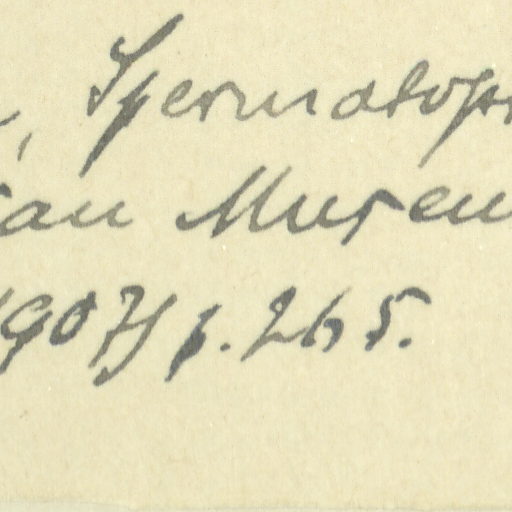 , Spermatop
an Museu
1907 p. 265.